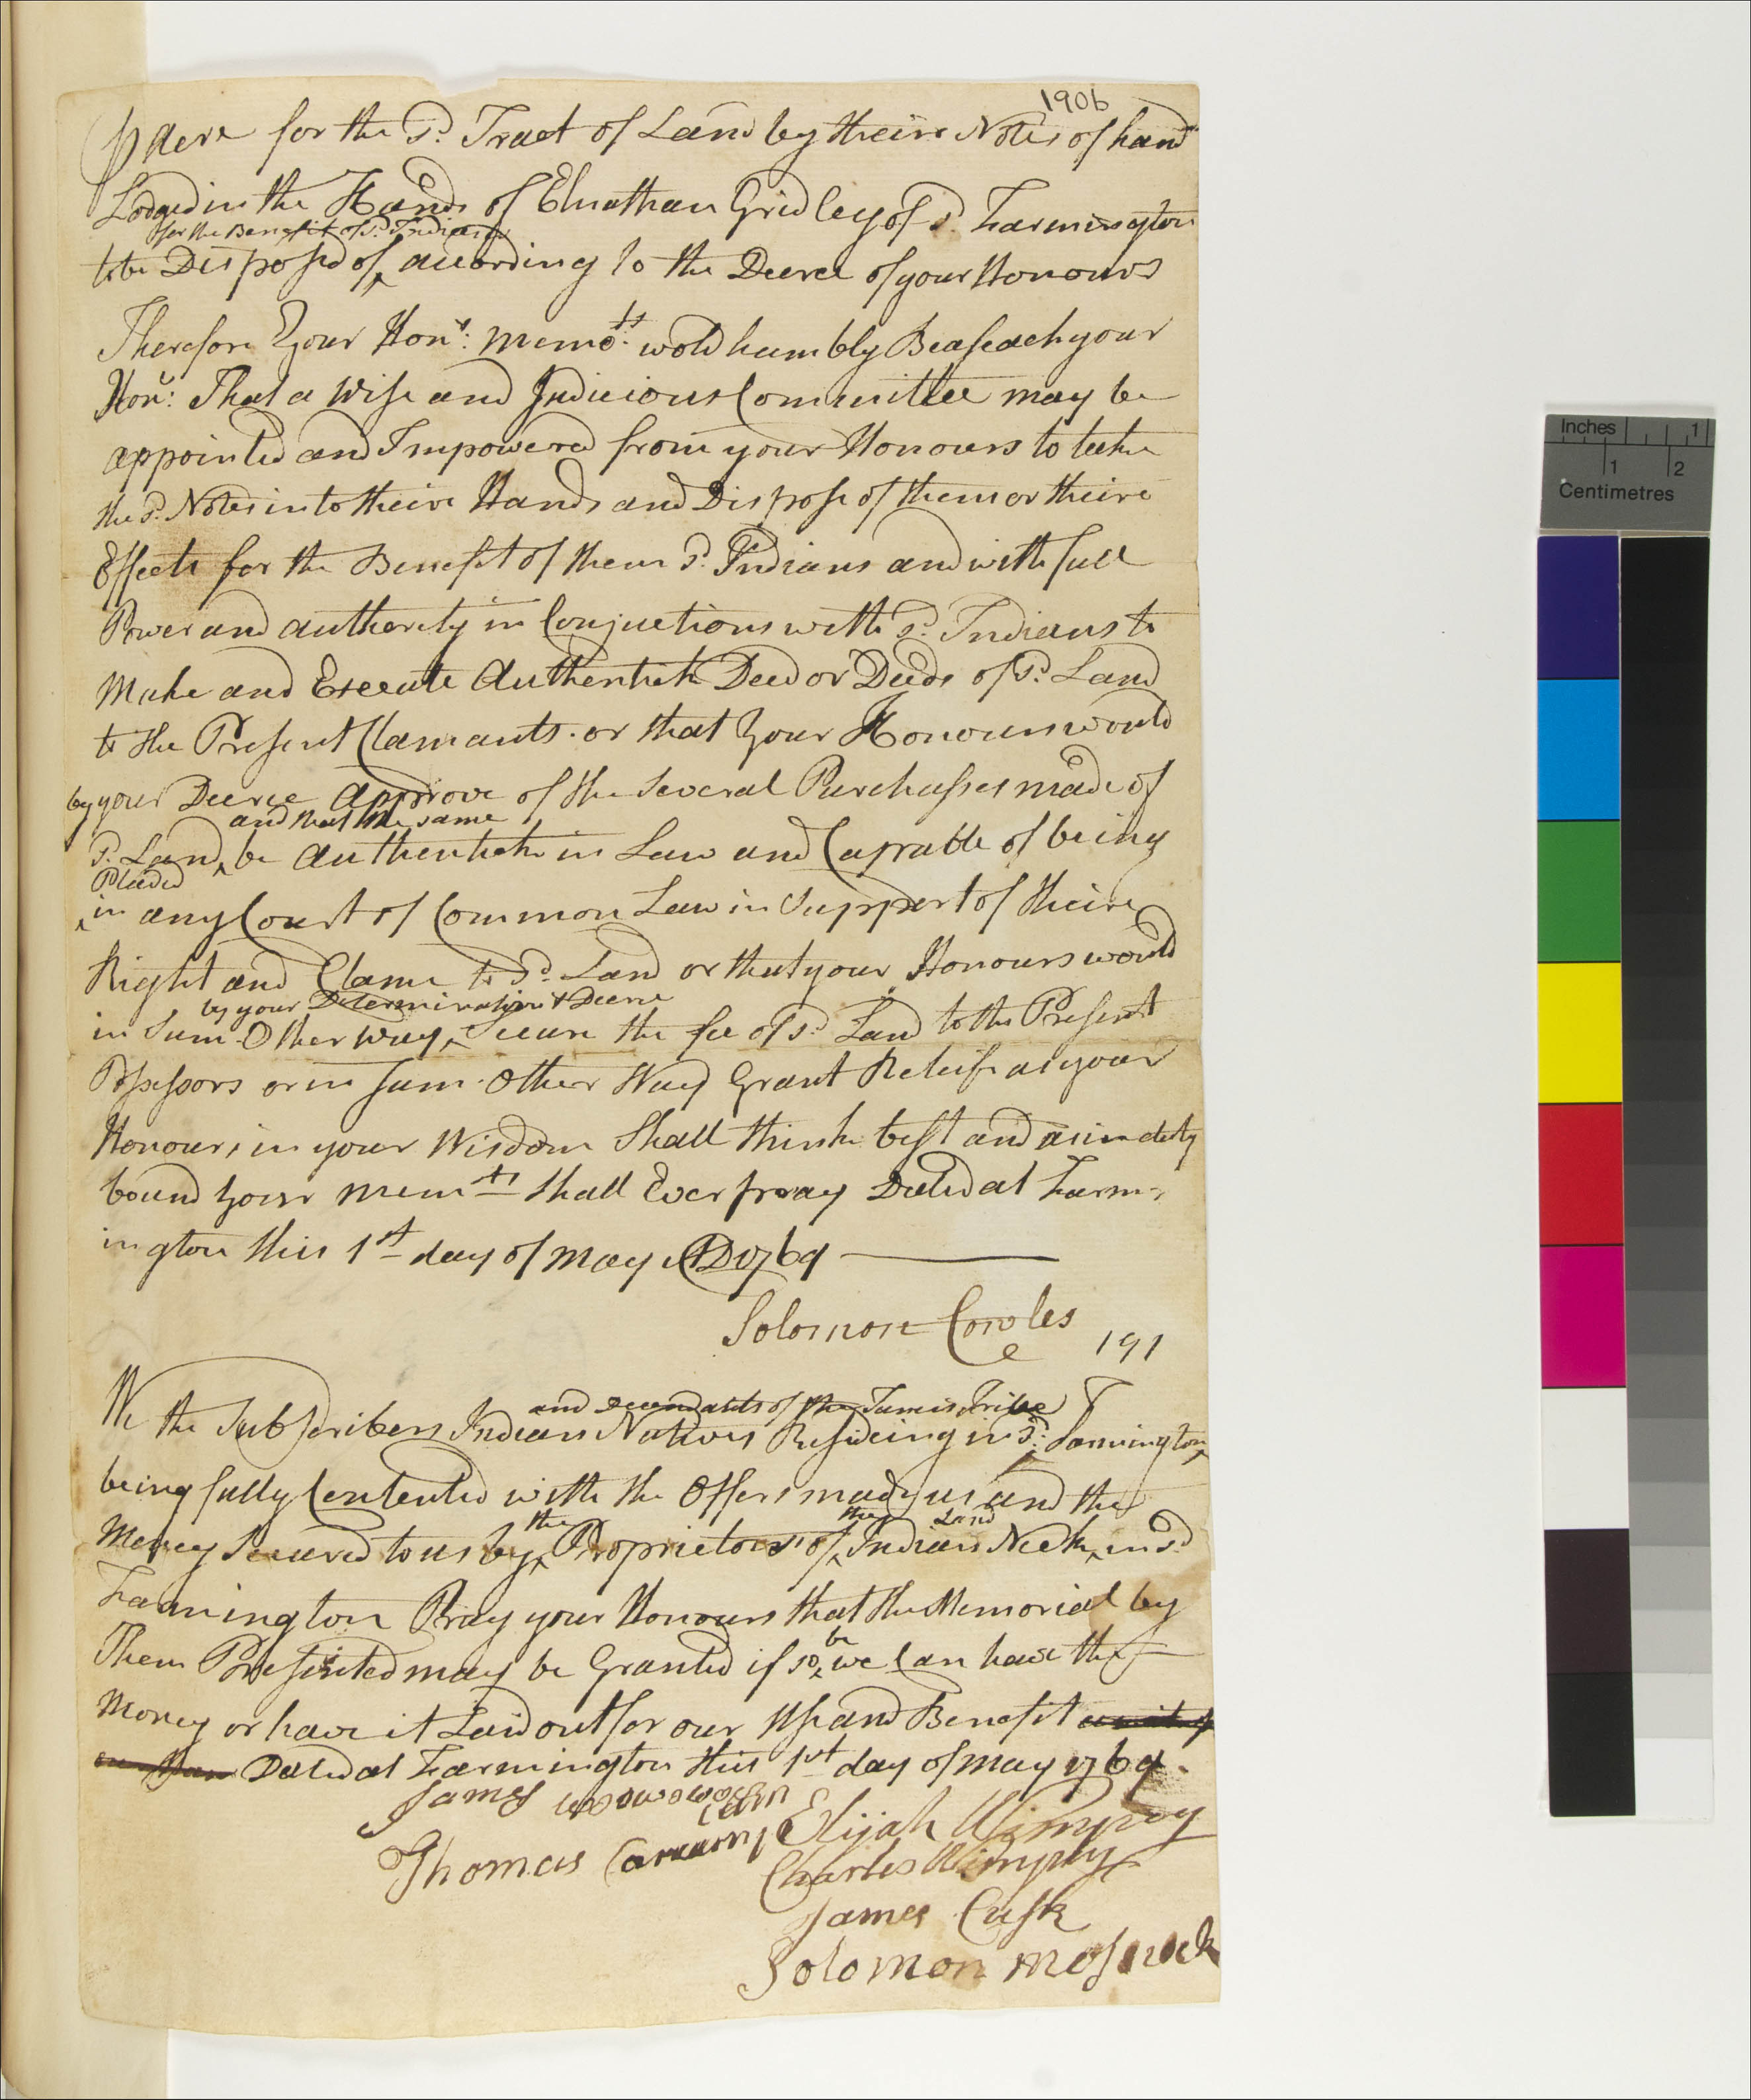 190b
℘ Acre for the sd. Tract of Land by theire Notes of hand
Lodged in the Hands of Elnathan Gridley of sd. Farmington
for the Benefit of sd. Indians
to be Disposed of ‸ according to the Decree of your Honours
Therefore Your Honrs: memots: wold humbly Beaseach your
Honr: That a Wise and Judicious Committee may be
appointed and Impowered from your Honours to take
the sd. Notes into theire Hands and Dispose of them or theire
Effects for the Benefit of them sd. Indians and with full
Power and authority in Conjuctions with sd. Indians to
Make and Execute Authentick Deed or Deeds of sd. Land
to the Present Clamants. or that Your Honours would
by your Decree Approve of the Several Purchasses made of
and that the same
sd. Land ‸ be Authentick in Law and Capable of being
Pleaded
‸ in any Court of Common Law in Support of theire
Right and Clame to sd. Land or that your Honours would
by your Determination & Decree
in Sum Other way ‸ Secure the fee of sd. Land to the Present
Possessors or in sum Other Way Grant Releife as your
Honours in your Wisdom Shall think best and as in duty
bound Your Memts Shall Ever pray Dated at Farm-
ington this 1st day of May AD 1769
Solomon Cowles
191
and decendants of the Tunxis Tribe
We the Subscribers Indian Natives Resideing in sd. Farmington ‸
being fully Contented with the Offers made us and the
the the Land
Money Secured to us by ‸ Proprietors of ‸ Indian Neck ‸ in sd
Farmington Pray your Honours that the Memorial by
be
Them Presented may be Granted if so ‸ we Can have the
Money or have it Laid out for our Use and Benefit
Dated at Farmington this 1st day of May 1769.
James Wowowoom
Thomas Elijah Wimpey
Charles Wimpey
James Cusk
Solomon Mossuck